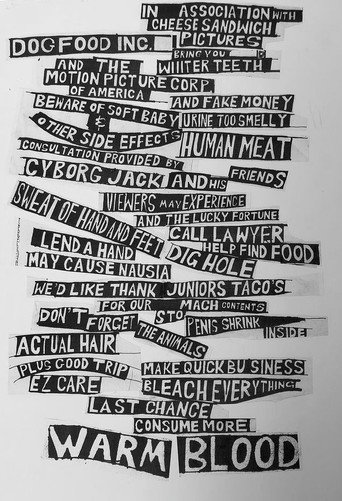 IN ASSOCIATION WITH
CHEESE SANDWICH
DOG FOOD INC. PICTURES
BRING YOU
AND THE WIIITER TEETH
MOTION PICTURE CORP
OF AMERICA
BEWARE OF SOFT BABY AND FAKE MONEY
& URINE TOO SMELLY
OTHER SIDE EFFECTS HUMAN MEAT
CONSULTATION PROVIDED BY
CYBORG JACK AND HIS FRIENDS
SWEAT OF HAND AND FEET
VIEWERS MAY EXPERIENCE
AND THE LUCKY FORTUNE
CALL LAWYER
LEND A HAND HELP FIND FOOD
DIG HOLE
MAY CAUSE NAUSIA
WE'D LIKE THANK JUNIORS TACO'S
FOR OUR MACH CONTENTS
DON'T FORGET STO PENIS SHRINK INSIDE
THE ANIMALS
ACTUAL HAIR
PLUS GOOD TRIP MAKE QUICK BUSINESS
EZ CARE BLEACH EVERYTHING
LAST CHANCE
CONSUME MORE
WARM BLOOD